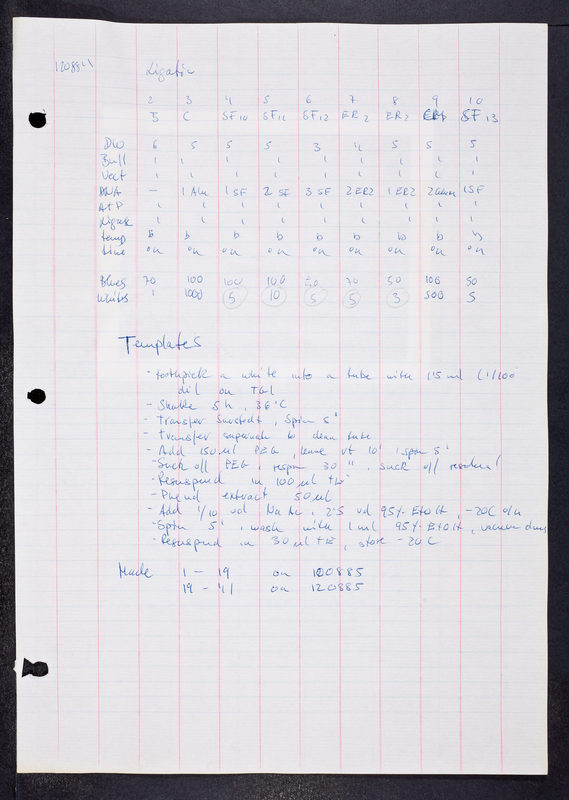 Ligation
2 3 4 5 6 7 8 9 10
B C SF10 SF11 SF12 ER2 ER2 SF13
DW 6 5 5 5 3 4 5 5 5
Buff 1 1 1 1 1 1 1 1 1
Vect 1 1 1 1 1 1 1 1 1
DNA - 1 Alu 1 SF 2 SF 3 SF 2 ER2 1 ER2 1 SF
ATP 1 1 1 1 1 1 1 1 1
Ligase 1 1 1 1 1 1 1 1 1
temp b b b b b b b b b
time on on on on on on on on on
Blues 70 100 100 100 50 70 50 100 50
Whites 1 1000 5 10 5 5 3 500 5
Templates
- toothpick a white into a tube with 1.5 ml (1/100
dil on TG1
- Shake 5 h, 36°C
- Transfer Sarstedt, Spin 5'
- transfer supernah to clean tube
- Add 150 µl PEG, leave rt 10', spin 5'
- Suck off PEG, respin 30", suck off
- Resuspend in 100 µl
- Phenol extract 50 µl
- Add 1/10 vol NaAc, 2.5 vol 95% EtOH, -20C o/n
- Spin 5', wash with 1 ml 95% EtOH, vacuum
- Resuspend in 30 µl, store -20C
Made 1 - 19 on 100885
19 - 41 on 120885